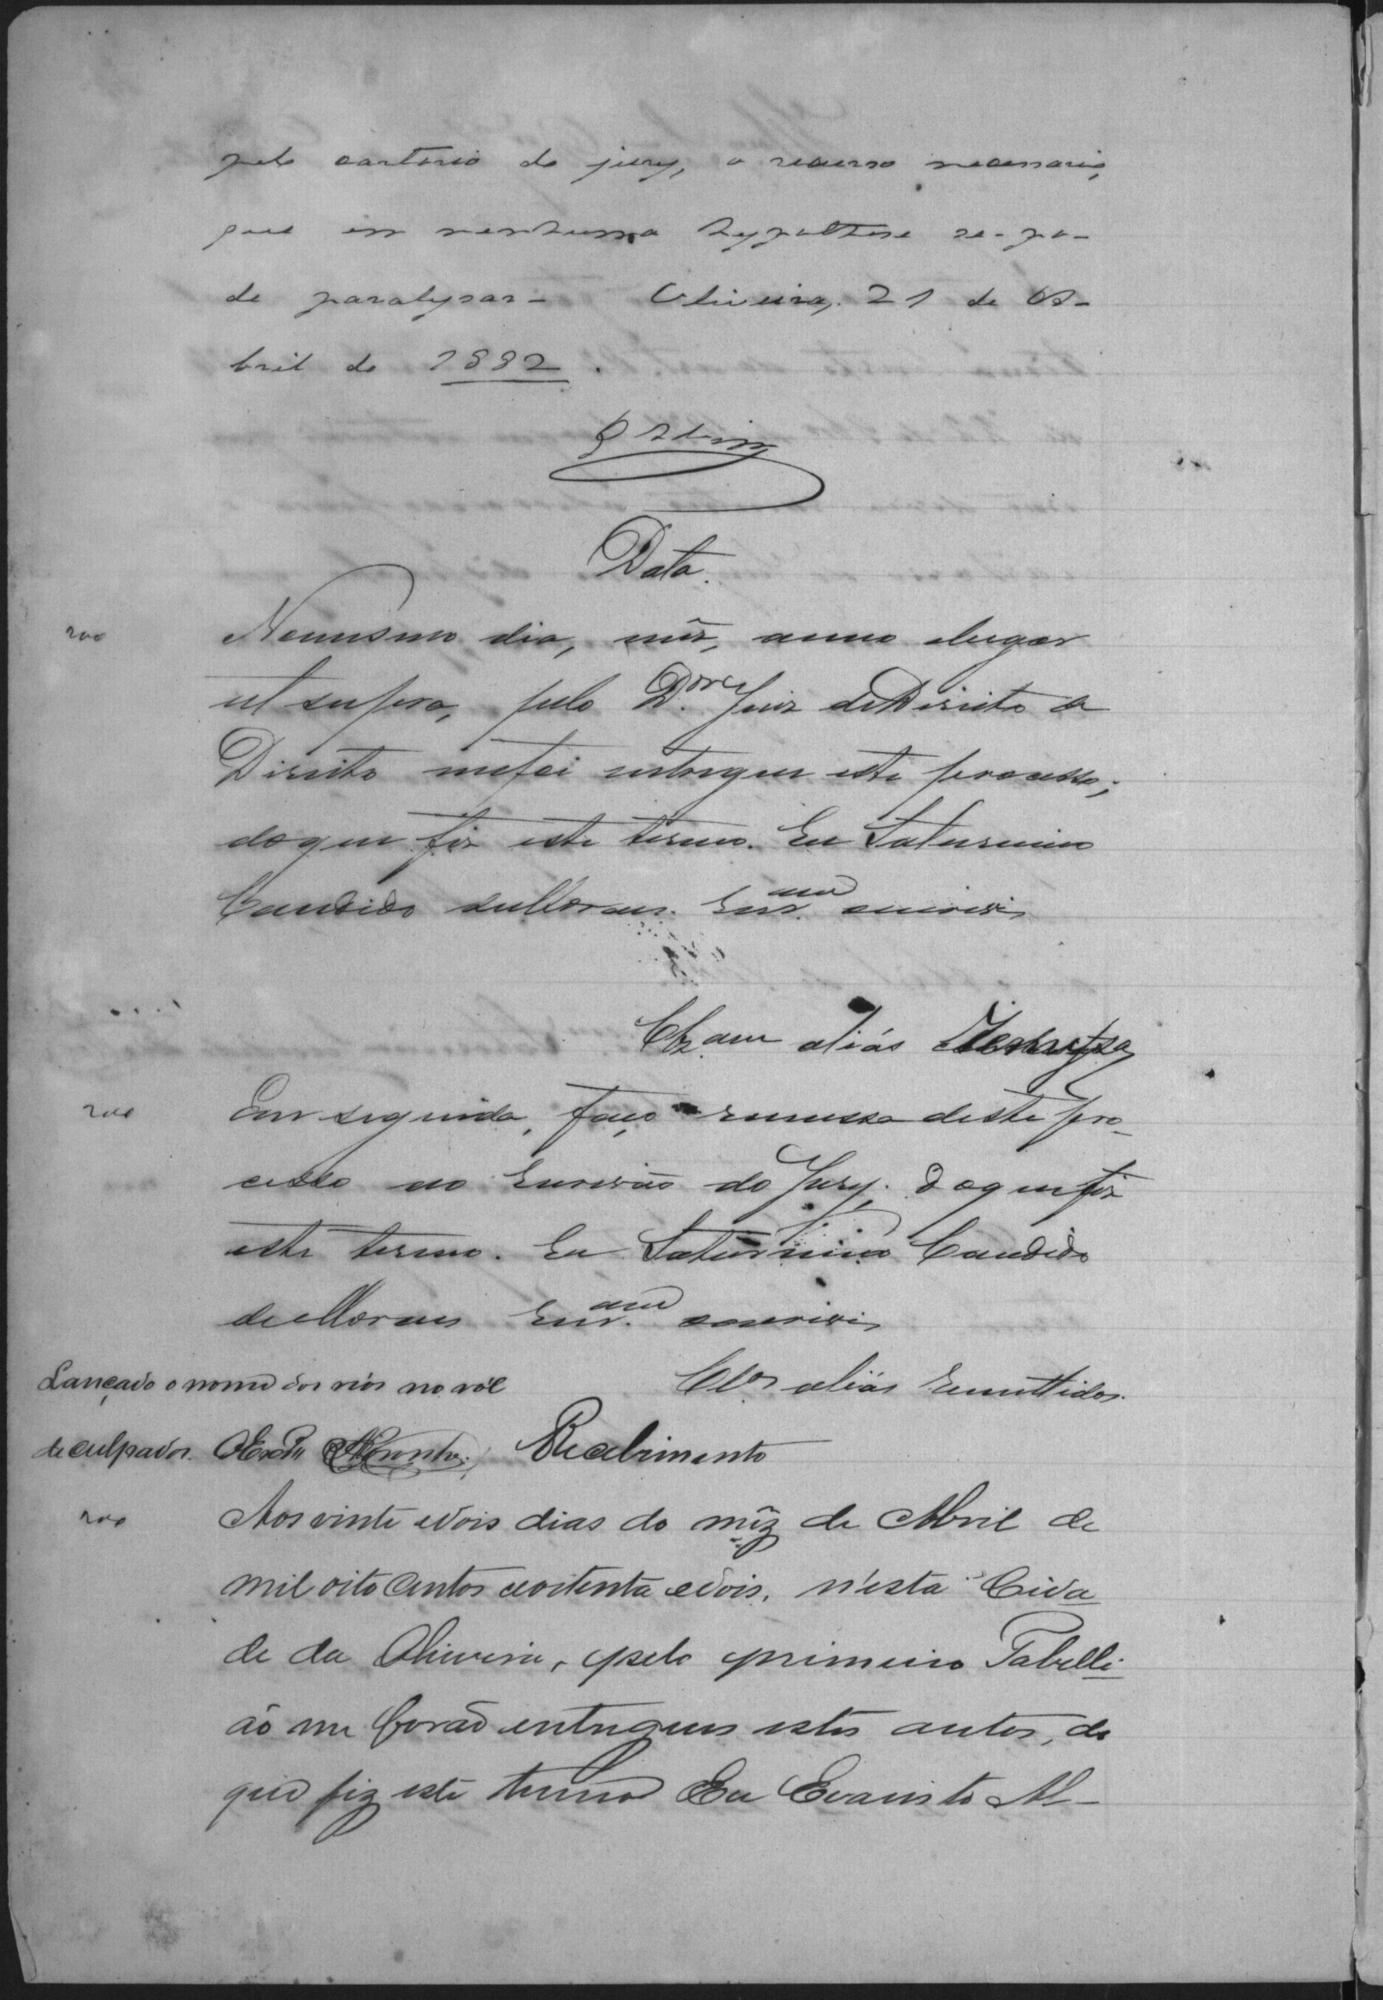 pelo cartorio do jury, o recurso necessario,
que em nenhuma hypothese se-po-
de paralysar - Oliveira, 21 de A-
bril de 1882.
Data.
200 Nomesmo dia, mêz, anno elugar
ut supra, pelo Dor Juiz deDireito da
Direito mefoi entregue este processo;
doque fiz este termo. Eu Saturnino
Candido deMoraes. Escram escrevi
Clzam aliás Remessa
200 Em seguida, faço remessa deste pro-
cesso ao Escrivão do Jury. Doque fiz
este termo. Eu Saturnino Candido
deMoraes Escram escrevi
Lançado o nome dos réos no ról
Clos aliás Remettidos.
de culpados.
Recebimento
200 Aos vinte edois dias do mêz de Abril de
mil oito centos eoitenta edois, n'esta Cida
de da Oliveira, pelo primeiro Tabelli-
ão me forão entregues estes autos, do
que fiz este termo Eu Evaristo Al-